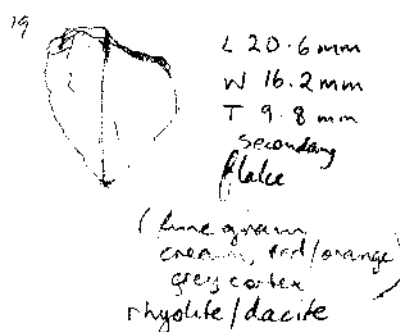 19
L 20.6 mm
W 16.2 mm
T 9.8 mm
secondary
flake
(fine grain
cream, red/orange
grey cortex)
rhyolite/dacite